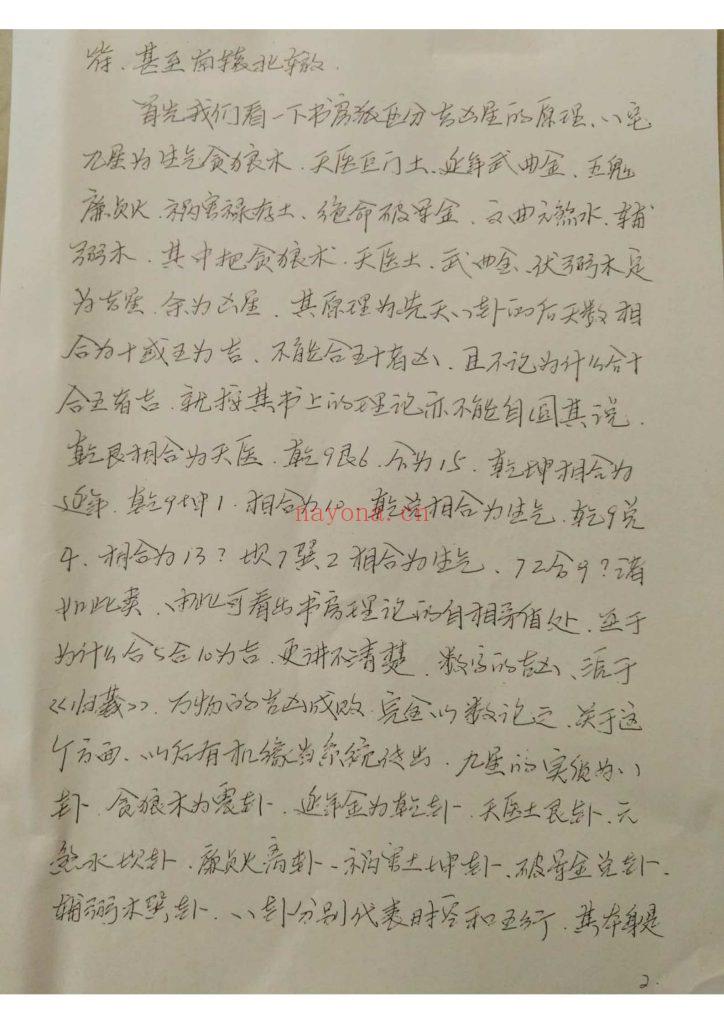 符、甚至南辕北辙.
首先我们看一下书房派区分吉凶星的原理、八宅
九星为生气贪狼木.天医巨门土.延年武曲金.五鬼
廉贞火.祸害禄存土、绝命破军金、文曲六煞水.辅
弼木.其中把贪狼木.天医土.武曲金、伏弼木定
为吉星.余为凶星.其原理为先天八卦的后天数相
合为十或五为吉.不能合五十者凶、且不论为什么合十
合五者吉.就按其书上的理论亦不能自圆其说.
乾艮相合为天医.乾9艮6.合为15.乾坤相合为
延年.乾9坤1.相合为10.乾兑相合为生气.乾9兑
nayona.cn
4.相合为13?坎7巽2相合为生气、72合9?诸
如此类.由此可看出书房理论的自相矛盾处.至于
为什么合5合10为吉.更讲不清楚.数字的吉凶、源于
《归藏》.万物的吉凶成败.完全以数论之.关于这
个方面.以后有机缘当系统传出.九星的实质为八
卦.贪狼木为震卦.延年金为乾卦.天医土艮卦.六
煞水坎卦.廉贞火离卦、祸害土坤卦、破军金兑卦.
辅弼木巽卦.八卦分别代表时空和五行.其本身是
2.